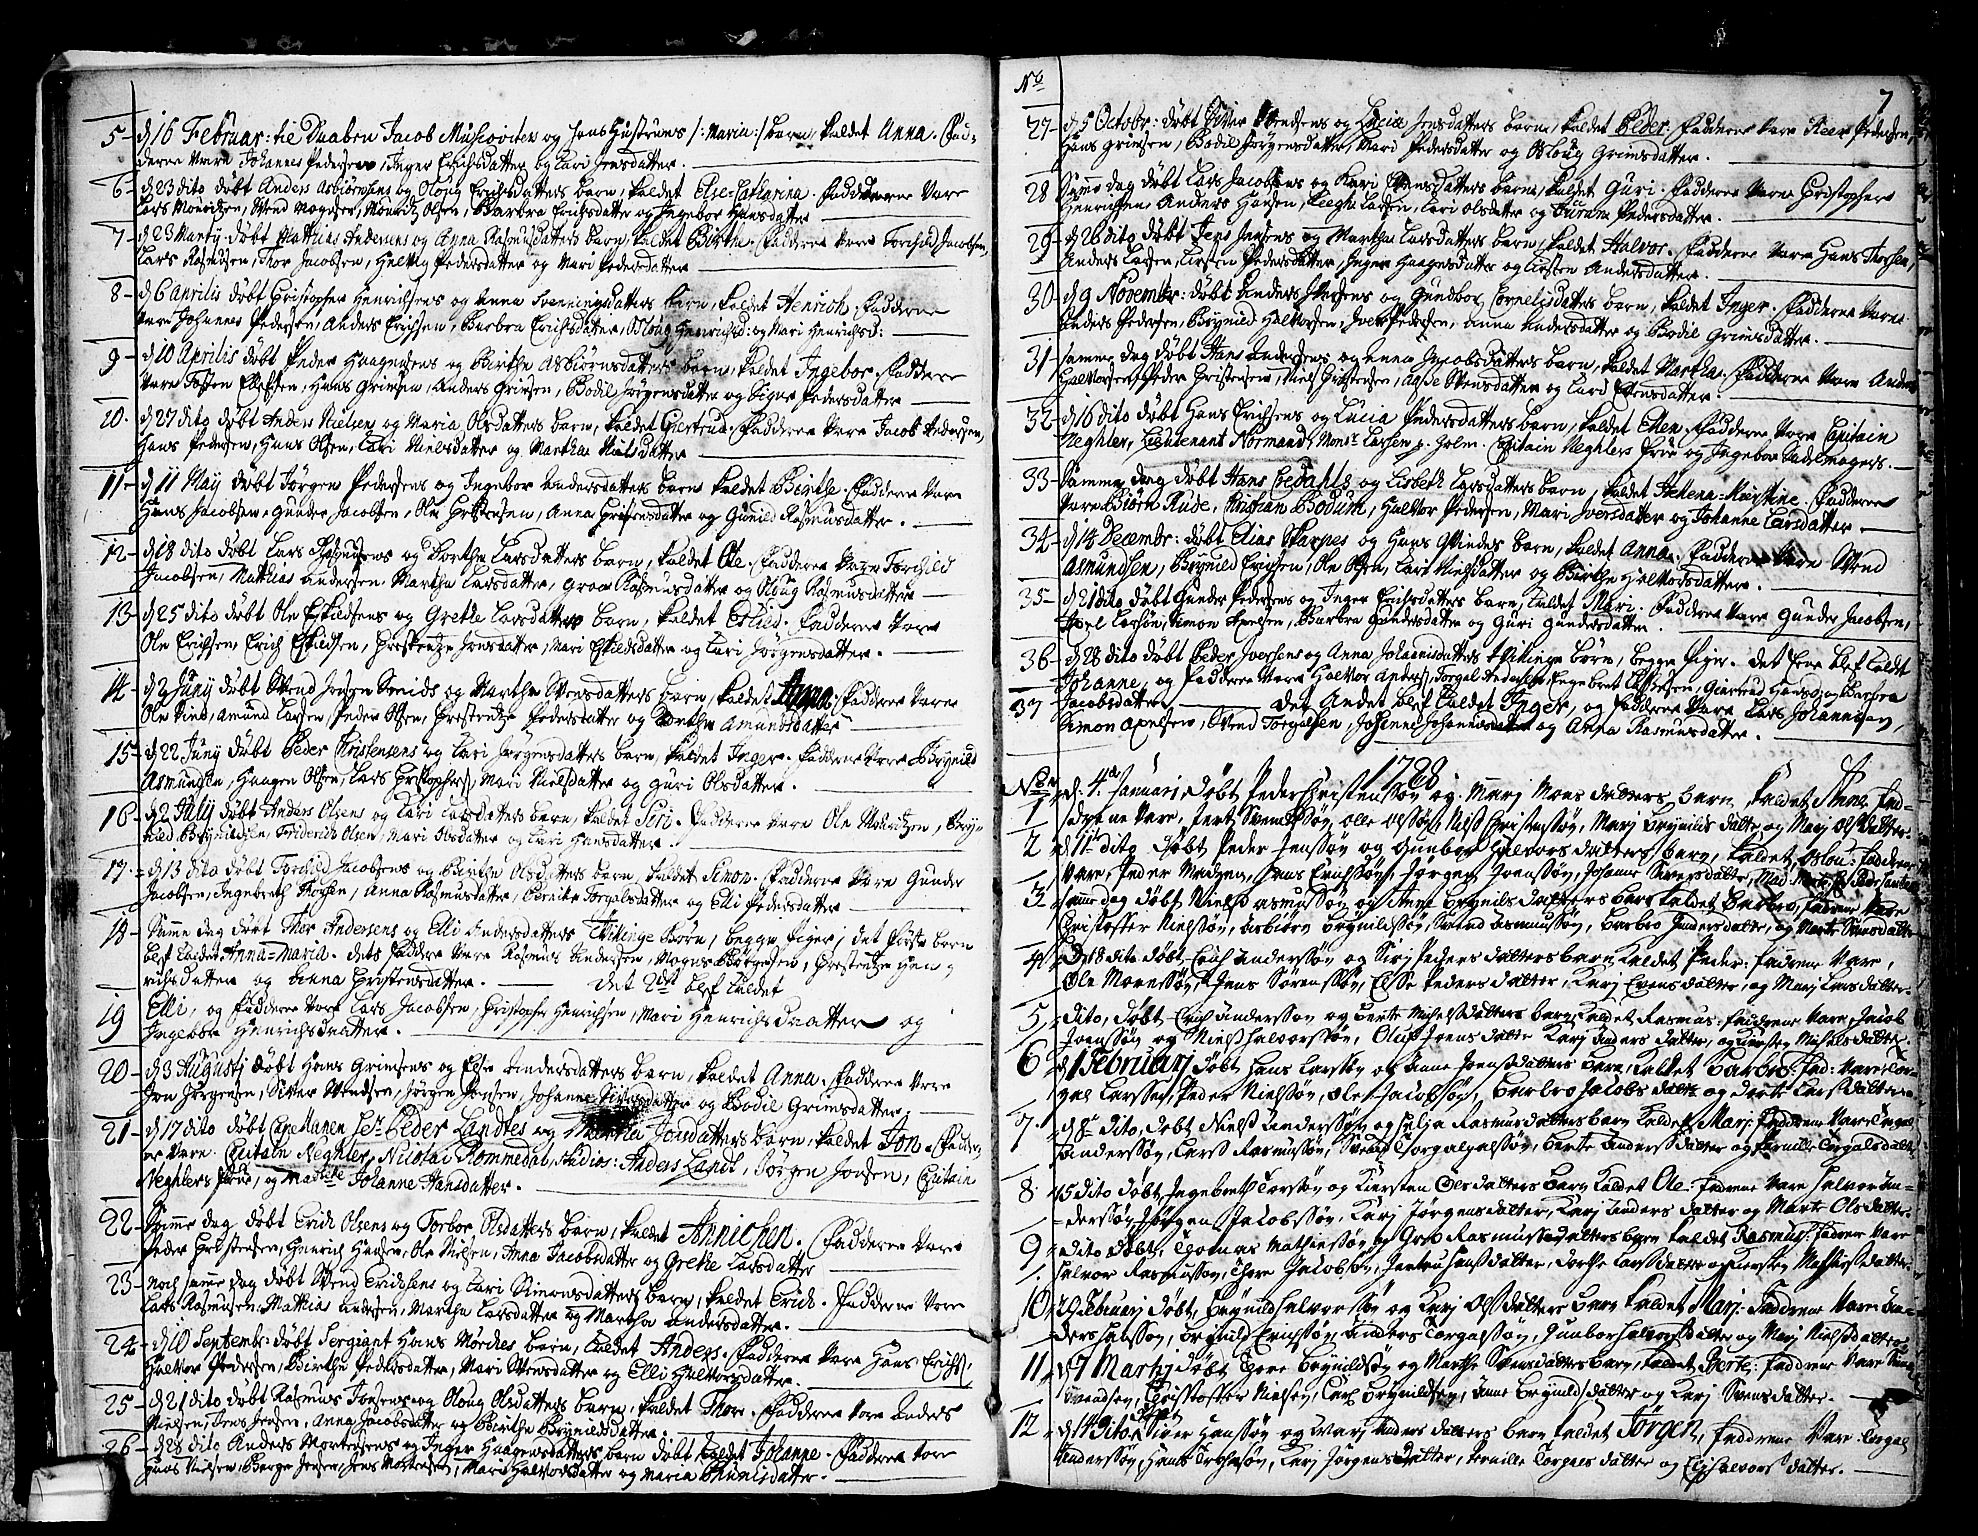 5- d 16 Februar: tie Daaben Jacob Muscoviter og hans Hustrues /: Maria :/ barn, kaldet Anna. Fad-
derne vare Johannes Pedersen, Inger Erichsdatter og Kari Jensdatter.
6- d 23 dito døbt Anders Asbiørnsens og Oloug Erichsdatters barn, kaldet Else-Catharina. Fadderne Vare
Lars Mouritzen, Svend Mogensen, Mouritz Olsen, Barbra Erichsdatter og Ingebor Hansdatter
7- d 23 Marty døbt Mathias Andersens og Anna Rasmusdatters barn, kaldet Birthe. Fadderne Vare Torchild Jacobsen,
Lars Rasmusen, Thor Jacobsen, Helvig Pedersdatter og Mari Pedersdatter
8- d 6 Aprilis døbt Christopher Henrichsens og Anna Svenningsdatters barn, kaldet Henrich. Fadderne
Vare Johannes Pedersen, Anders Erichsen, Barbra Erichsdatter, Oloug Henrichsd: og Mari Henrichsd:
9- d 10 Aprilis døbt Peder Haagensens og Berthe Asbiørnsdatters barn, kaldet Ingebor. Fadderne
Vare Tosten Ellefsen, Hans Grimsen, Anders Grimsen, Bodil Jørgensdatter og Signe Pedersdatter
10. d 27 dito døbt Anders Nielsens og Maria Olsdatters barn, kaldet Giertrud. Fadderne Vare Jacob Andersen,
Hans Pedersen, Hans Olsen, Kari Nielsdatter og Martha Nielsdatter
11- d 11 May døbt Jørgen Pedersens og Ingebor Andersdatters barn kaldet Birthe. Fadderne Vare
Hans Jacobsen, Gunder Jacobsen, Ole Christensen, Anna Christensdatter og Gunild Rasmusdatter.
12- d 18 dito døbt Lars Rasmusens og Dorthe Larsdatters barn, kaldet Ole. Fadderne Vare Torchild
Jacobsen, Mathias Andersen, Martha Larsdatter, Groe Rasmusdatter og Oloug Rasmusdatter
13- d 25 dito døbt Ole Eskildsens og Grethe Larsdatters barn, kaldet Eskild. Fadderne Vare
Ole Erichsen, Erich Eskildsen, Chrestentze Jensdatter, Mari Eskildsdatter og Kari Jørgensdatter.
14 d 2 Juny døbt Svend Jensen Smids og Marthe Svensdatters barn, kaldet Anna. Fadderne Vare
Ole Vind, Amund Larsen, Peder Olsen, Chrestentze Pedersdatter og Dorthe Amundsdatter
15- d 22 Juny døbt Peder Christensens og Kari Jørgensdatters barn, kaldet Inger. Fadderne Vare Brynild
Asmundsen, Haagen Olsen, Lars Christophers:, Mari Nielsdatter og Guri Olsdatter.
16 d 2 July døbt Anders Olsens og Kari Larsdatters barn, kaldet Siri. Fadderne Vare Ole Mouritzen, Bryn-
nild Brynildsen, Friderich Olsen, Mari Olsdatter og Kari Hansdatter.
17- d 13 dito døbt Torchild Jacobsens og Birthe Olsdatters barn, kaldet Simon. Fadderne Vare Gunder
Jacobsen, Ingebreth Thorsen, Anna Rasmusdatter, Bereite Torgalsdatter og Elli Pedersdatter
18- Samme dag døbt Thor Andersens og Elli Andersdatters Tvillinge Børn, begge Piger; det første barn
blef kaldet Anna=Maria. dets Faddere Vare Rasmus Andersen, Mogns Børgesen, Chrestentze Hen,
richsdatter og Anna Christensdatter. — Det 2det blef kaldet
19 Elli, og Faddere Vare Lars Jacobsen, Christopher Henrichsen, Mari Henrichsdaatter og
Ingebor Henrichsdaatter.
20- d 3 Augusti døbt Hans Grimsens og Else Andersdatters barn, kaldet Anna. Fadderne Vare
Jon Jørgensen, Siver Svendsen, Jørgen Jonsen, Johanne Siversdatter og Bodil Grimsdatter.
21- d 17 dito døbt Sr: Peder Landtes og Martha Jonsdatters barn, kaldet Jon. Fadder-
ne Vare. Capitain Neghler, Nicolai Rommedal, Studios: Anders Landt, Jørgen Jonsen, Capitain
Neghlers Frue, og Madme Johanne Hansdatter.
22- Samme dag døbt Erich Olsens og Torbor Olsdatters barn, kaldet Annichen. Fadderne Vare
Peder Christensen, Henrich Hansen, Ole Nielsen, Anna Jacobsdatter og Grethe Larsdatter
23- Noch samme dag døbt Svend Erichsens og Kari Simonsdatters barn, kaldet Erich. Fadderne Vare
Lars Rasmusen, Mathias Andersen, Martha Larsdatter og Martha Andersdatter.
24- d 10 Septembr: døbt Sergiant Hans Mordtes barn, kaldet Anders. Fadderne Vare Hans Erichs:
Halvor Pedersen, Birthe Pedersdatter, Mari Svensdatter og Elli Halvorsdatter.
25- d 21 dito døbt Rasmus Jonsens og Oloug Olsdatters barn, kaldet Thor. Fadderne Vare Anders
Nielsen, Jens Jensen, Anna Jacobsdatter og Birthe Brynildsdatter.
26- d 28 dito Anders Mortensens og Inger Haagensdatters barn døbt kaldet Johanne. Fadderne Vare
Hans Nielsen, Børge Jensen, Jens Mortensen, Mari Halvorsdatter og Maria datter.
No 7
27- d 5 Octobr: døbt Siver Svendsens og Lucia Jensdatters barn, kaldet Peder. Fadderne Vare Peer Pedersen,
Hans Grimsen, Bodil Jørgensdatter, Mari Pedersdatter og Osloug Grimsdatter.
28 Samme dag døbt Lars Jacobsens og Kari Svensdatters barn, kaldet Guri. Fadderne Vare Christopher
Henrichsen, Anders Hansen, Larsen, Kari Olsdatter og Guram Pedersdatter.
29- d 26 dito døbt Jens Jensens og Martha Larsdatters barn, kaldet Halvor. Fadderne Vare Hans Thorsen,
Anders Larsen, Kirsten Pedersdatter, Inger Haagensdatter og Kirsten Andersdatter.
30- d 9 Novembr: døbt Anders Pedersens og Gundbor Cornelisdatters barn, kaldet Inger. Fadderne Vare
Anders Pedersen, Brynild Halvorsen, Iver Pedersen, Anna Andersdatter og Bodil Grimsdatter.
31 Samme dag døbt Hans Andersens og Anna Jacobsdatters barn, kaldet Martha. Fadderne Vare Anders
Halvorsen, Peder Christensen, Niels Christensen, Aase Svensdatter og Kari Svensdatter.
32 d 16 dito døbt Hans Erichsens og Lucia Pedersdatters barn, kaldet Ellen. Fadderne Vare Capitain
Neghler, Lieutenant Normand, Monsr Larsen p. Holm. Capitain Neghlers Frue og Ingebor Sadelmagers.
33- Samme dag døbt Hans Ledahls og Lisbeth Larsdatters barn, kaldet Helena-Kirstine. Fadderne
Vare Biørn Rude, Christian Bodum, Halvor Pedersen, Mari Iversdatter og Johanne Larsdatter
34- d 14 Decembr: døbt Elias Skarpnes og Hans Qvindes barn, kaldet Anna. Fadderne Vare Svend
Asmundsen, Brynild Erichsen, Ole Olsen, Kari Nielsdatter og Birthe Halvorsdatter.
35- d 21 dito døbt Gunder Pedersens og Inger Erichsdatters barn, kaldet Mari. Fadderne Vare Gunder Jacobsen,
Axel Larsøn, Simon Axelsen, Barbra Gundersdatter og Guri Gundersdatter.
36- d 28 dito døbt Peder Iversens og Anna Johannisdatters tvillinge børn, begge Piger. det Ene blef kaldt
Johanne, og Fadderne Vare Halvor Anders:, Torgal Andersen, Engebret Larsen, Giertrud Hansd: og Barbra
37- Jacobsdatter. — Det Andet blef kaldet Inger, og Fadderne Vare Lars Johannisen,
Simon Axelsen, Svend Torgalsen, Johanne Johannisdatter og Anna Rasmusdatter.
1788
1 d: 4de Januarj, Døbt Peder Christenssøn og Marj Mons datters Barn, kaldet Anne, Fad-
drene Vare, Svendssøn, Olle Olssøn, Niels Christenssøn, Marj Brynilds datter, og Marj Ols datter.
2 d 11te dito Døbt Peder Jenssøn og Gunbor Halvors datters barn, kaldet Oslou: Faddrene,
Vare, Peder Madzen, Jens Erichssøn, Jørgen Joenssøn, Johanne Siversdatter,
3- samme dag døbt Niels Rasmussøn og Anne Brynilsdatters barn kaldet Barbro, Faddrene Vare
Christoffer Nielssøn, Asbiørn Brynildssøn, Svend Rasmussøn, Barbro Gundersdatter, og Marte Svensdatter
4 d 18 dito døbt Carl Anderssøn og Sirj Peders datters barn kaldet Peder: Fadrene Vare,
Ole Monssøn, Jens Sørenssøn, Else Peders datter, Karj Evensdatter, og Marj Larsdatter.
5 Dito, døbt Carl Anderssøn og Berte Michelsdatters barn kaldet Rasmus. Faddrene Vare, Jacob
Joenssøn og Niels Halvorssøn, Oluf Joens datter Karj Anders datter, og Kirsten Nielsdatter.
6 d 1 Februarj døbt Hans Larssøn og Anne Joensdatters barn, kaldet Barbro. Fad: Vare Tor-
gal Larssen, Peder Nielssøn, Ole Jacobssøn, Barbro Jacobs datter og Dorte Larsdatter
7- d 8de Dito, Døbt Niels Anderssøn og Silja Rasmusdatters barn kaldet Marj. Faddrene Vare Torgal
Anderssøn, Lars Rasmussøn, Svend Torgalssøn, Berte Andersdatter og Pernille Torgalsdatter
8. 15 Dito døbt, Ingebreth Torssøn og Kiersten Ols datters barn kaldet Ole. Fadrene Vare Halvor An-
derssøn, Jørgen Jacobssøn, Karj Jørgensdatter, Karj Anders datter og Marte Olsdatter.
9 Dito døbt, Thomas Mathiessøn og Groe Rasmusdatters barn kaldet Rasmus. Fadrene Vare
Halvor Rasmussøn, Thore Jacobssøn, Hansdatter, Dorthe Larsdatter og Kiersten Mathiesdatter.
10 Februarj Døbt, Brynild Halvorssøn og Karj Olsdatters barn kaldet Marj. Faddrene Vare An-
ders Hanssøn, Brynild Erichssøn, Anders Torgalssøn, Gunbor Halvorsdatter og Marj Nielsdatter.
11- d 7 Martij Døbt Tore Brynildssøn og Marthe Svensdatters barn, kaldet Berte. Faddrene Vare
Svendsen, Christoffer Nielsen, Carl Brynildsen, Anne Brynildsdatter og Karj Svensdatter.
12 d 14 Dito Døbt Siver Hanssøn og Marj Anders datters barn kaldet Jørgen, Faddrene Vare Torgal
Anderssøn, Hans Torgalssøn, Karj Jørgensdatter, Pernille Torgals datter og Elj Halvors datter.